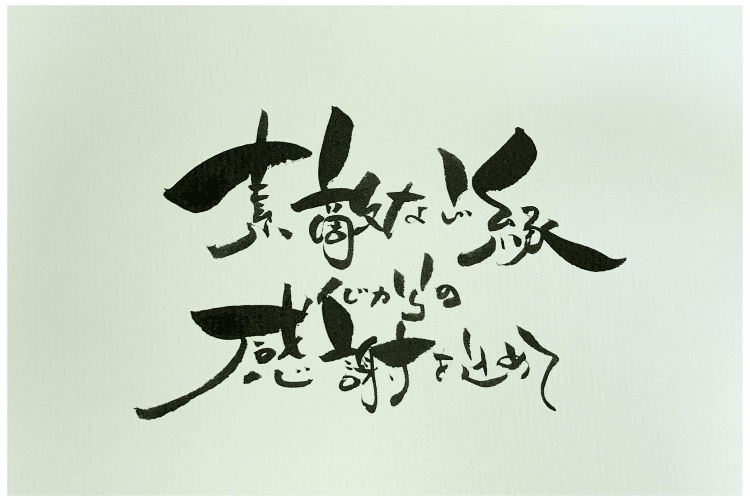 素敵なご縁
心からの
感謝を込めて